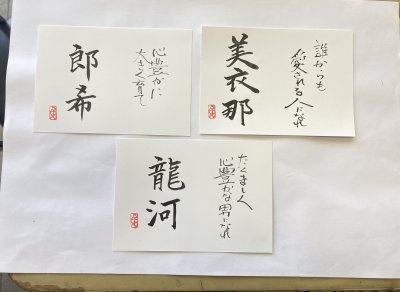 郎希
心豊かに
大きく育て
美衣那
誰からも
愛される人になれ
龍河
たくましく
心豊かな男になれ